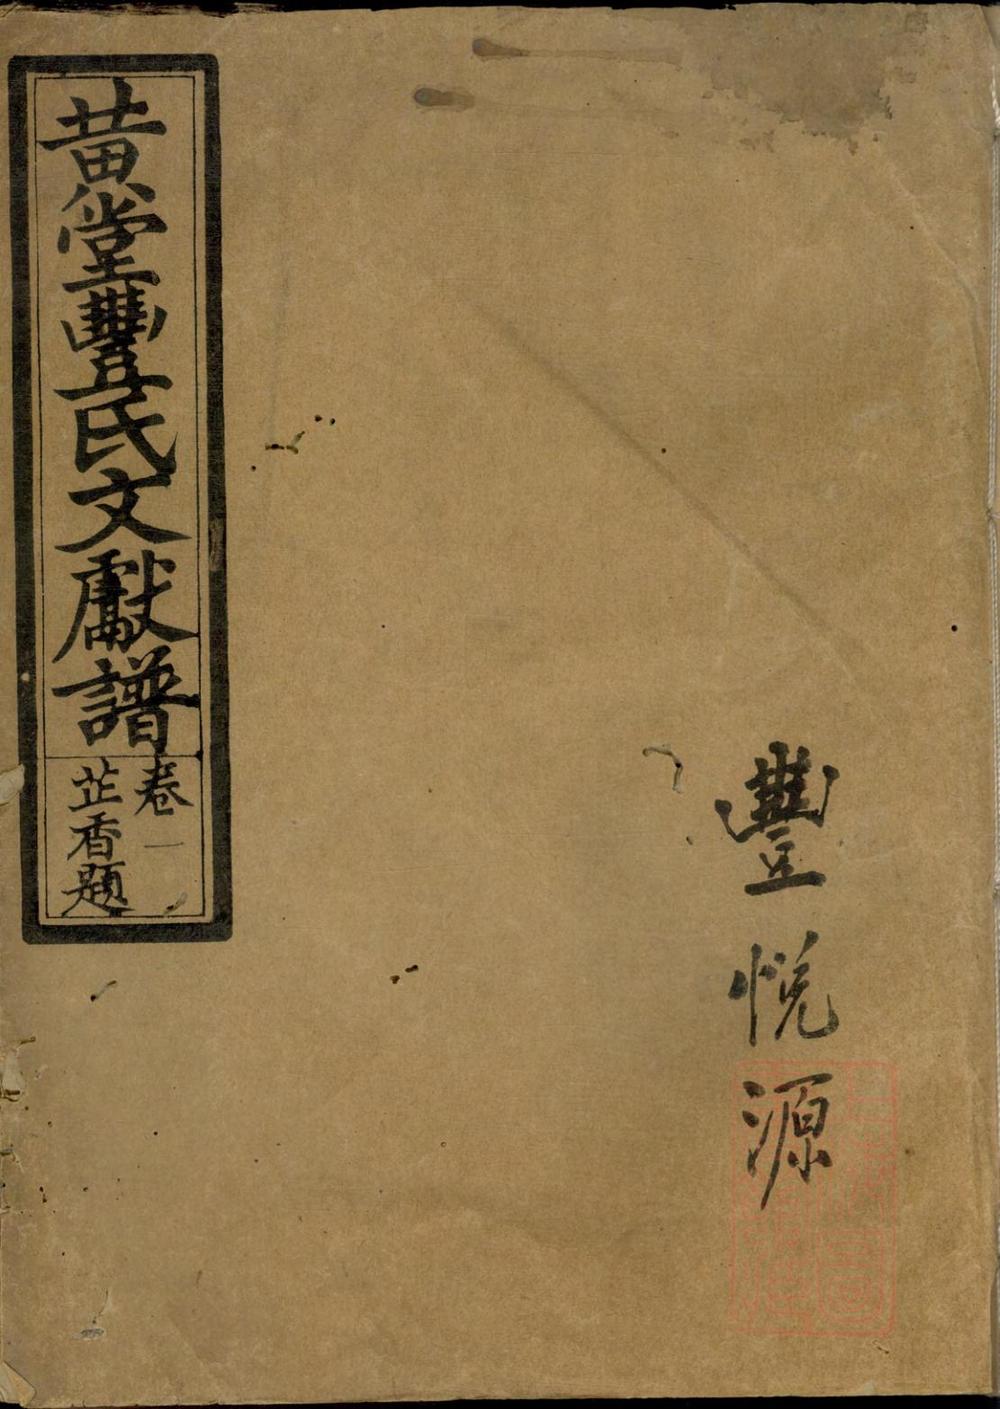 豐悅源
黃堂豐氏文獻譜
卷一
芷香題